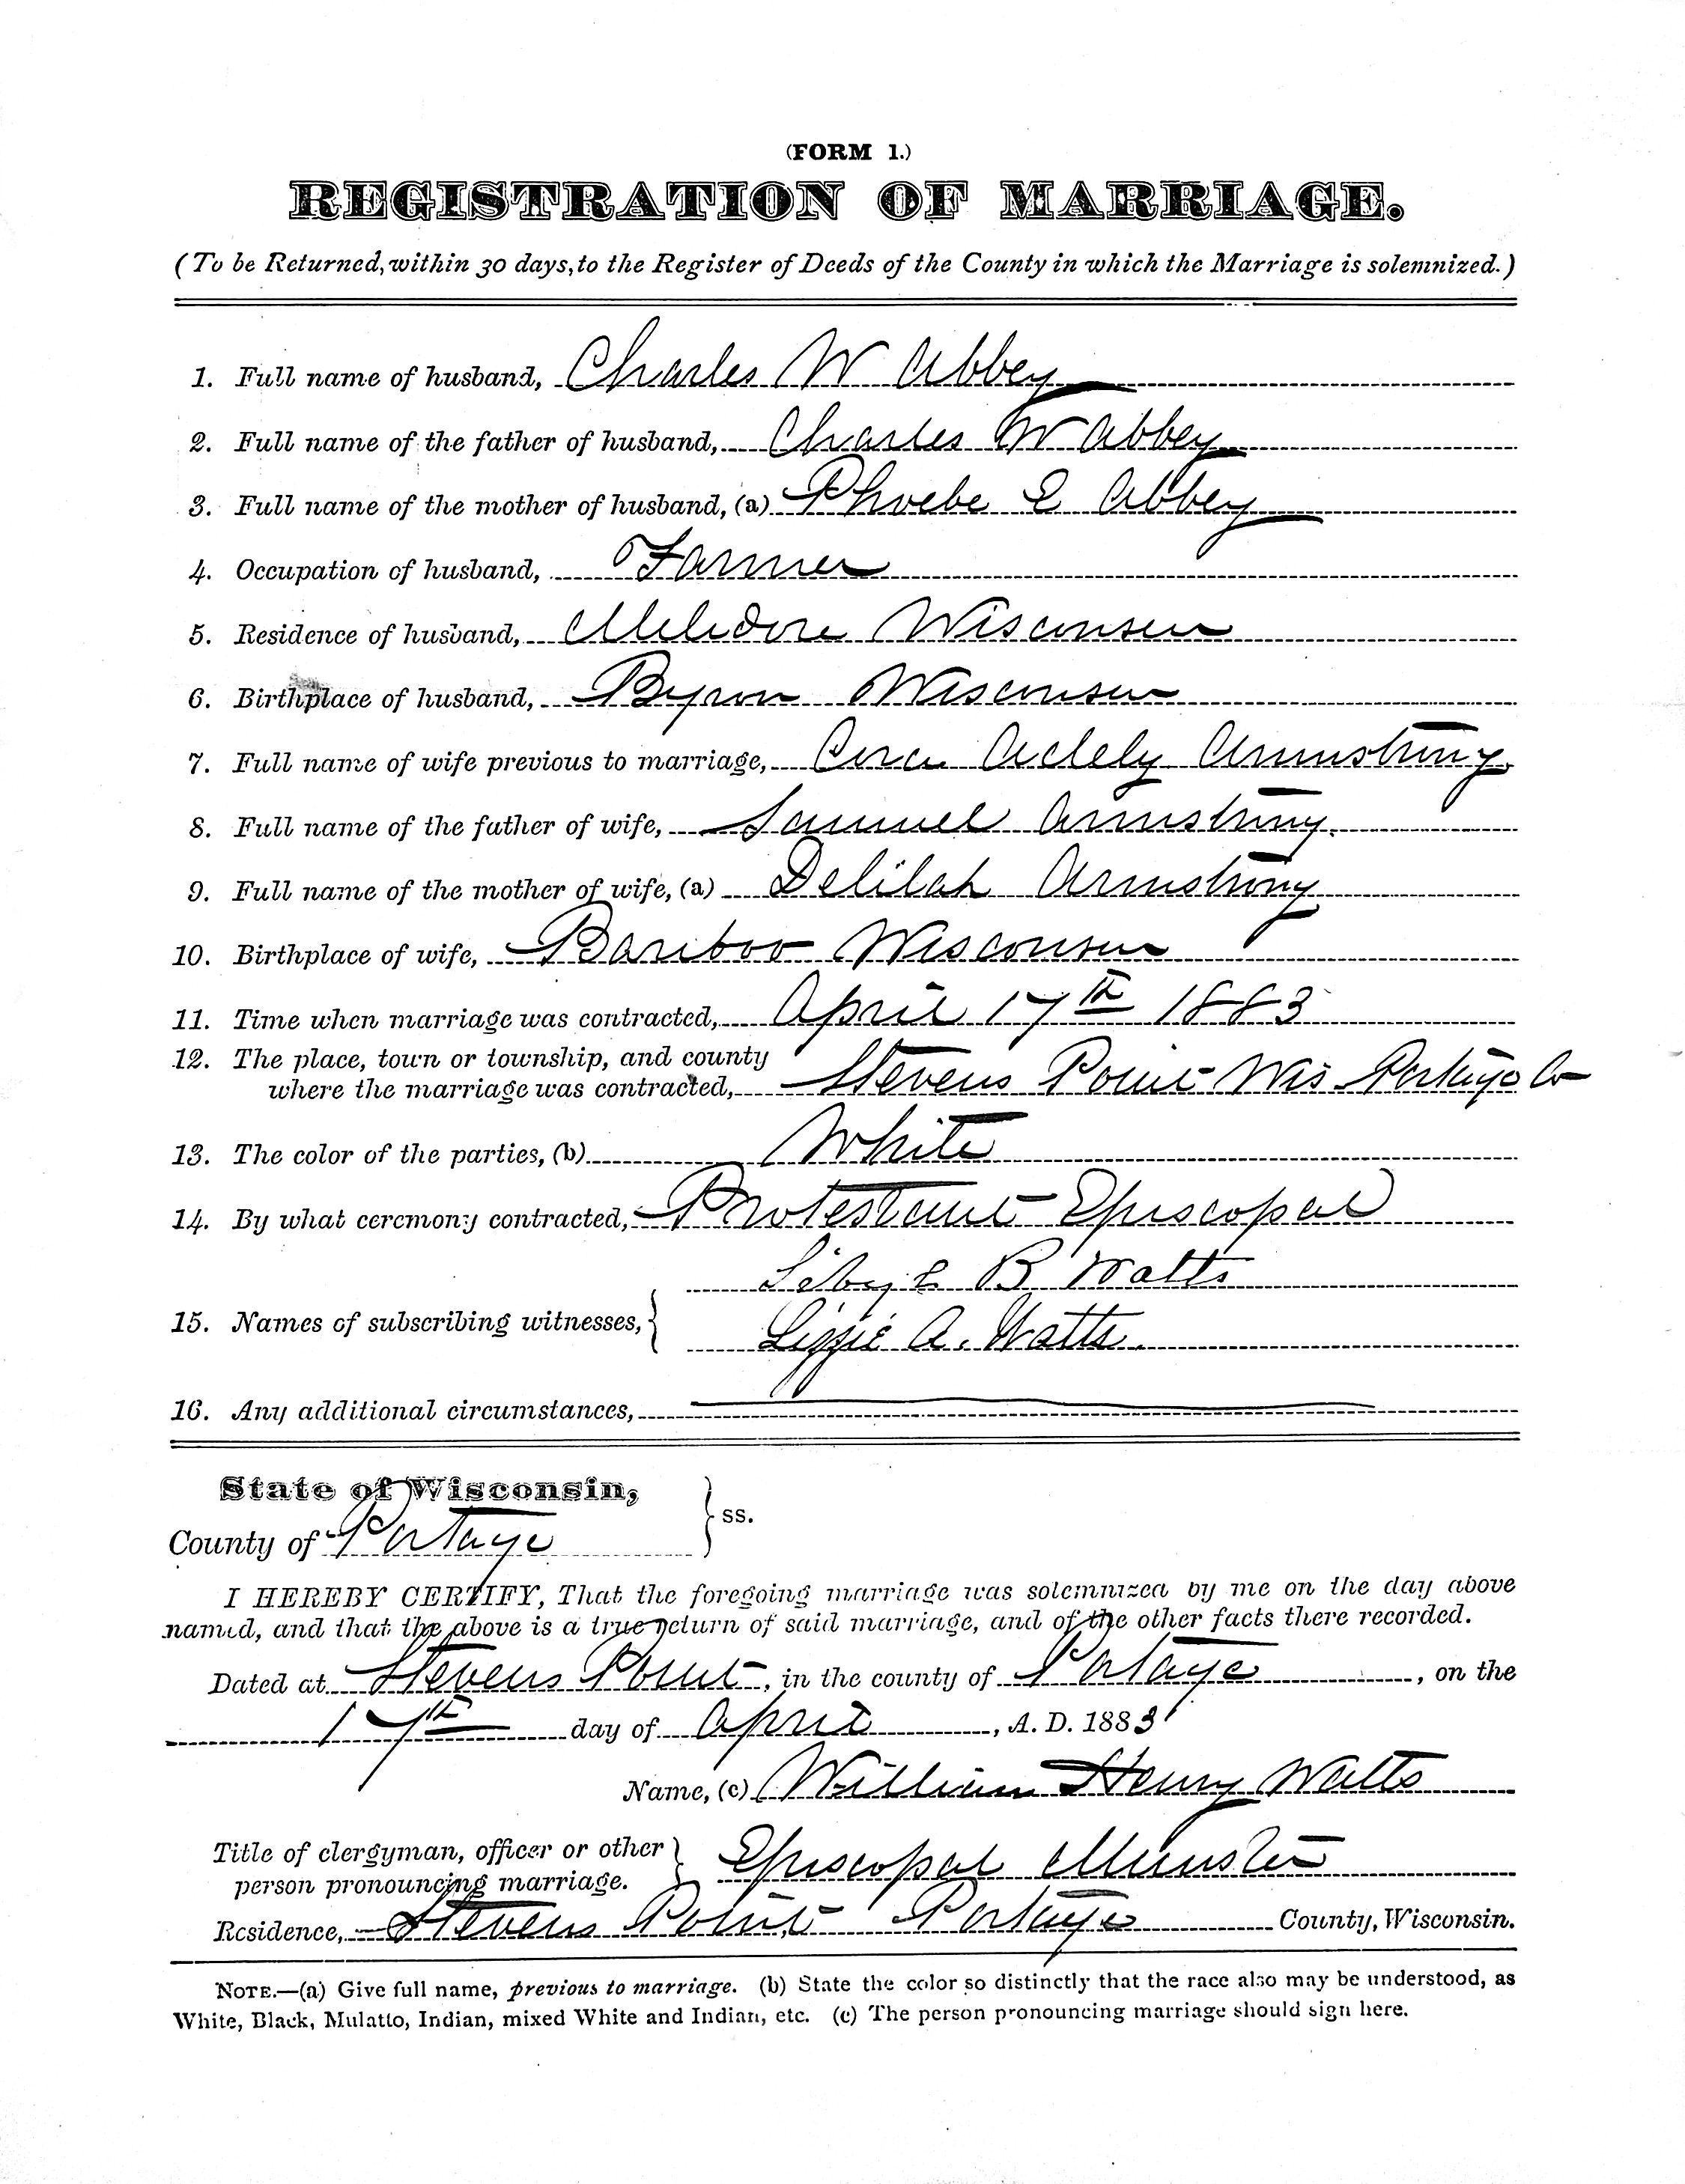 (FORM 1.)
REGISTRATION OF MARRIAGE.
(To be Returned, within 30 days, to the Register of Deeds of the County in which the Marriage is solemnized.)
1. Full name of husband, Charles W Abbey
2. Full name of the father of husband, Charles W Abbey
3. Full name of the mother of husband, (a) Phoebe E Abbey
4. Occupation of husband, Farmer
5. Residence of husband, Wisconsin
6. Birthplace of husband, Byron Wisconsin
7. Full name of wife previous to marriage, Cora Adely Armstrong
8. Full name of the father of wife, Samuel Armstrong.
9. Full name of the mother of wife, (a) Delilah Armstrong
10. Birthplace of wife, Bariboo Wisconsin
11. Time when marriage was contracted, April 17th 1883
12. The place, town or township, and county
where the marriage was contracted, Stevens Point Wis Portage Co
13. The color of the parties, (b) White
14. By what ceremony contracted, Protestant Episcopal
B Watts
15. Names of subscribing witnesses,
Lizzie A. Watts.
16. Any additional circumstances,
State of Wisconsin,
County of Portage
ss.
I HEREBY CERTIFY, That the foregoing marriage was solemnized by me on the day above
named, and that the above is a true return of said marriage, and of the other facts there recorded.
Dated at Stevens Point, in the county of Portage, on the
17th day of April, A. D. 1883
Name, (c) William Henry Watts
Title of clergyman, officer or other
person pronouncing marriage. Episcopal Minister
Residence, Stevens Point Portage County, Wisconsin.
NOTE.—(a) Give full name, previous to marriage. (b) State the color so distinctly that the race also may be understood, as
White, Black, Mulatto, Indian, mixed White and Indian, etc. (c) The person pronouncing marriage should sign here.